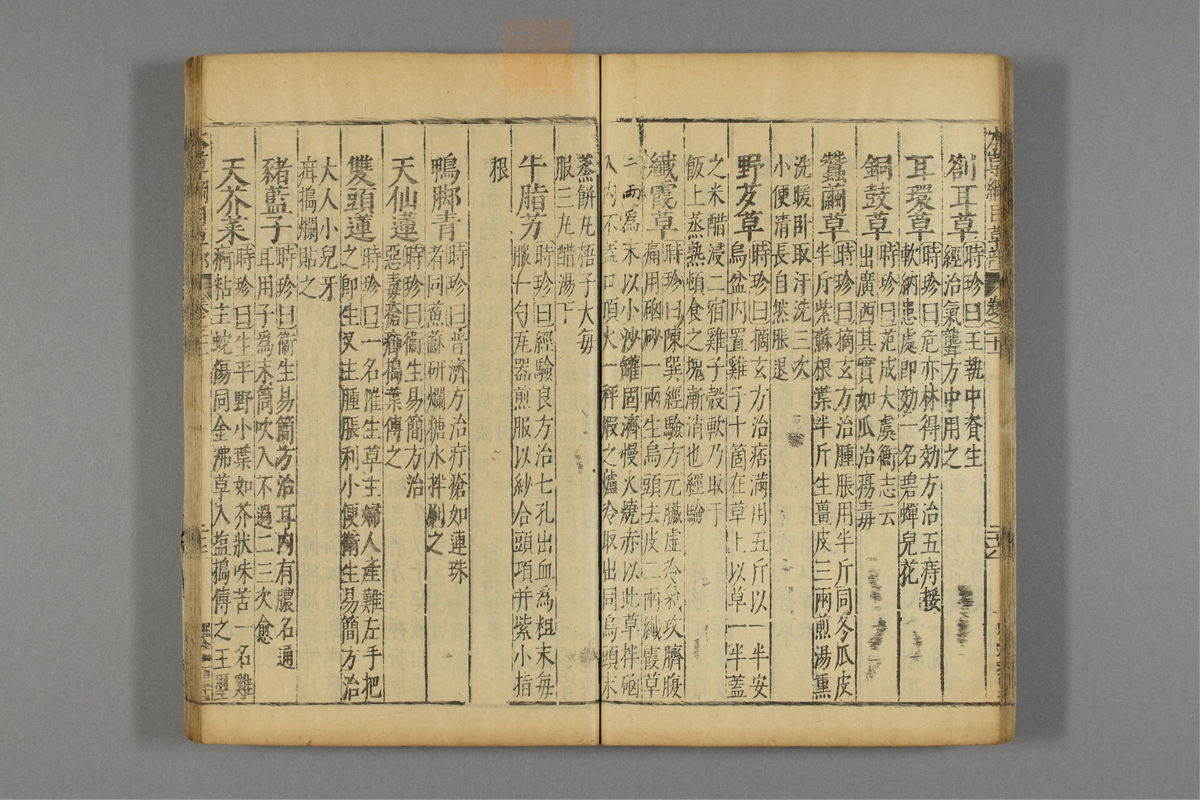 劄耳草
時珍曰王執中資生
經治氣聾方中用之
耳環草
時珍曰危亦林得効方治五痔挼
軟納患處即効一名碧蟬兒花
銅鼓草
時珍曰范成大虞衡志云
出廣西其實如瓜治瘍毒
蠶繭草
時珍曰摘玄方治腫脹用半斤同冬瓜皮
半斤紫蘇根葉半斤生薑皮三兩煎湯熏
洗暖卧取汗洗三次
小便清長自然脹退
野芨草
時珍曰摘玄方治痞滿用五斤以一半安
烏盆內置雞子十箇在草上以草一半蓋
之米醋浸二宿雞子殼軟乃取于
飯上蒸熟頓食之塊漸消也經驗
纎霞草
時珍曰陳巽經驗方元臟虛冷氣攻臍腹
痛用硇砂一兩生烏頭去皮二兩纎霞草
二兩為末以小沙罐固濟慢火燒赤以此草拌硇
入內不蓋口頂火一秤煆之爐冷取出同烏頭末
蒸餅丸梧子大每
服三丸醋湯下
牛脂芳
時珍曰經驗良方治七孔出血為粗末每
服一勺瓦器煎服以紗合頭項并紫小指
根
鴨脚青
時珍曰普濟方治疔瘡如連珠
者同魚蘇研爛糖水拌刷之
天仙蓮
時珍曰衞生易簡方治
惡毒瘡癤搗葉傅之
雙頭蓮
時珍曰一名催生草主婦人產難左手把
之即生又主腫脹利小便衞生易簡方治
大人小兒牙
疳搗爛貼之
豬藍子
時珍曰衞生易簡方治耳內有膿名通
耳用子為末筒吹入不過二三次愈
天芥菜
時珍曰生平野小葉如芥狀味苦一名雞
痾粘主蛇傷同金沸草入塩搗傅之王璽